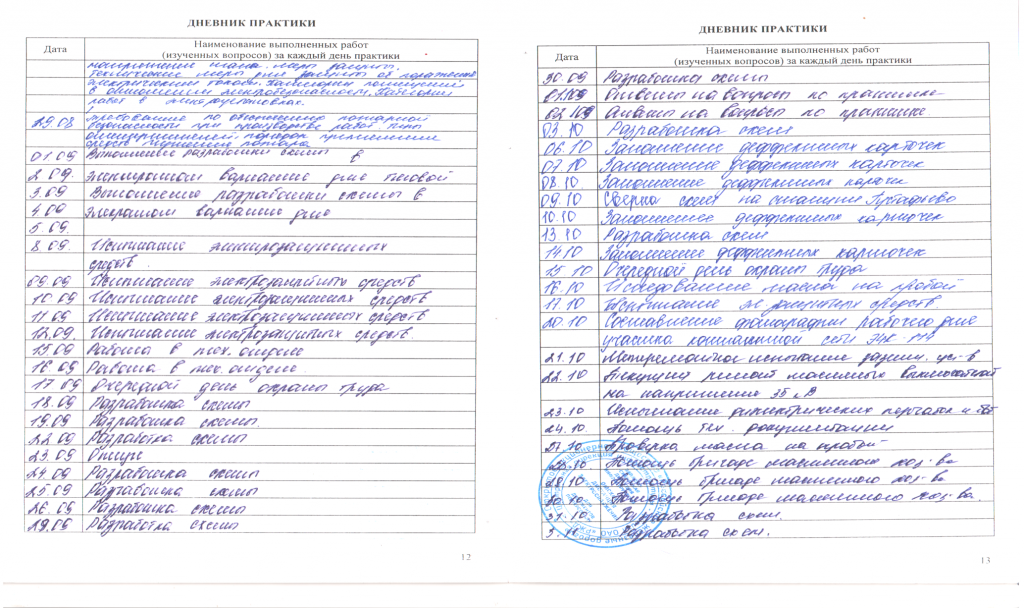 ДНЕВНИК ПРАКТИКИ
Дата
Наименование выполненных работ
(изученных вопросов) за каждый день практики
напряжение шага. Меры защиты.
Технические меры для защиты от поражения
электрическим током. Категории помещений
в отношении электробезопасности. Категории
работ в электроустановках.
29.08 требование по обеспечению пожарной
безопасности при производстве работ.
порядок применения
средств тушения пожара
01.09 Выполнение разработки схемы в
2 09. электронном варианте для тяговой
3.09 Выполнение разработки схемы в
4.09 электронном варианте для
5.09.
8.09. Испытание электрозащитных
средств.
09.09 Испытание электрозащитных средств
10.09 Испытание электрозащитных средств
11.09 Испытание электрозащитных средств
12.09. Испытание электрозащитных средств.
15.09 Работа в тех. отделе
16.09 Работа в тех. отделе
17 09 Очередной день охраны труда
18.09 Разработка схемы
19.09 Разработка схемы.
22 09 Разработка схемы
23.09 Отгул
24.09 Разработка схемы
25.09 Разработка схемы
26.09 Разработка схемы
29.09 Разработка схемы
12
ДНЕВНИК ПРАКТИКИ
Дата
Наименование выполненных работ
(изученных вопросов) за каждый день практики
30.09 Разработка схемы
01.10 Ответы на вопросы по практике
02.10 Ответы на вопросы по практике.
03.10 Разработка схем
06.10 Заполнение дефектных карточек
07.10 Заполнение дефектных карточек
08.10. Заполнение дефектных карточек
09.10 Сверка схем на станции
10.10 Заполнение дефектных карточек
13 10 Разработка схем
14.10 Заполнение дефектных карточек
15.10 Очередной день охраны труда
16.10 Исследование масла на пробой
17.10 Испытание эл защитных средств
20.10 Составление фотографии рабочего дня
участка контактной сети ЭЧК-
21.10 Межремонтное испытание защитн. уст-в
22.10 Текущий ремонт масляных выключателей
на напряжение 35 кВ
23.10 Испытание диэлектрических перчаток и
24.10 Помощь тех. документации
27.10 Проверка масла на пробой
28.10. Помощь бригаде масляного хоз-ва
29.10 Помощь бригаде масляного хоз-ва
30.10. Помощь бригаде масляного хоз-ва.
31.10. Разработка схем.
3.11 Разработка схем.
13